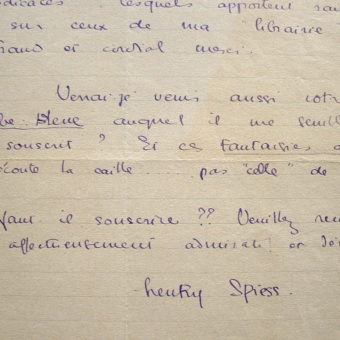 lesquels apportent
sur ceux de ma librairie
grand et cordial merci.
Verrai-je venir aussi votre
Bleue auquel il me semble
souscrit ? Et ces Fantaisies
écoute la caille ..... pas "celle" de
Faut-il souscrire ?? Veuillez
affectueusement admirati et
Henry Spiess.